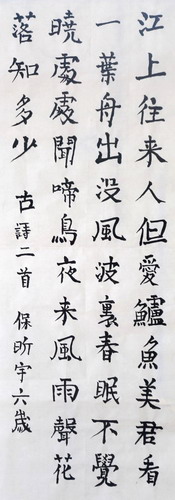 江上往来人但愛鱸魚美君看
一葉舟出没風波裏春眠不覺
曉處處聞啼鳥夜来風雨聲花
落知多少
古詩二首 保昕宇六歲